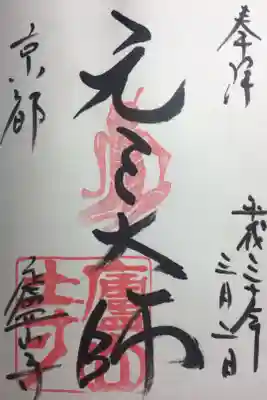 奉拝
平成三十年
三月二日
元三大師
京都
廬山寺
廬山寺